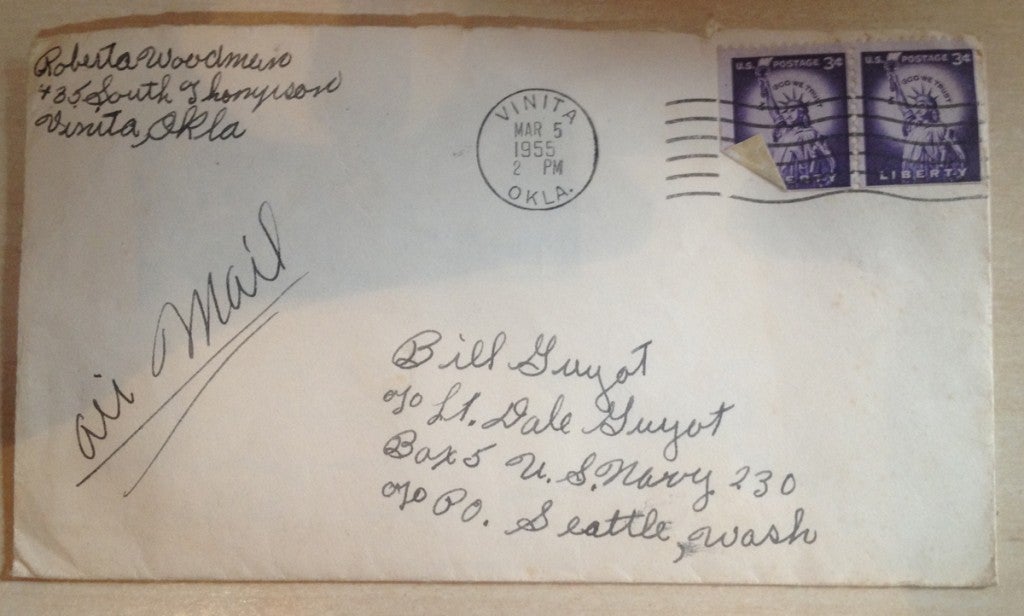 Roberta Woodman
435 South Thompson
Vinita, Okla
VINITA
MAR 5
1955
2 PM
OKLA.
U.S. POSTAGE 3¢
IN GOD WE TRUST
LIBERTY
U.S. POSTAGE 3¢
IN GOD WE TRUST
LIBERTY
air Mail
Bill Guyot
c/o Lt. Dale Guyot
Box 5 U.S. Navy 230
c/o P.O. Seattle, Wash